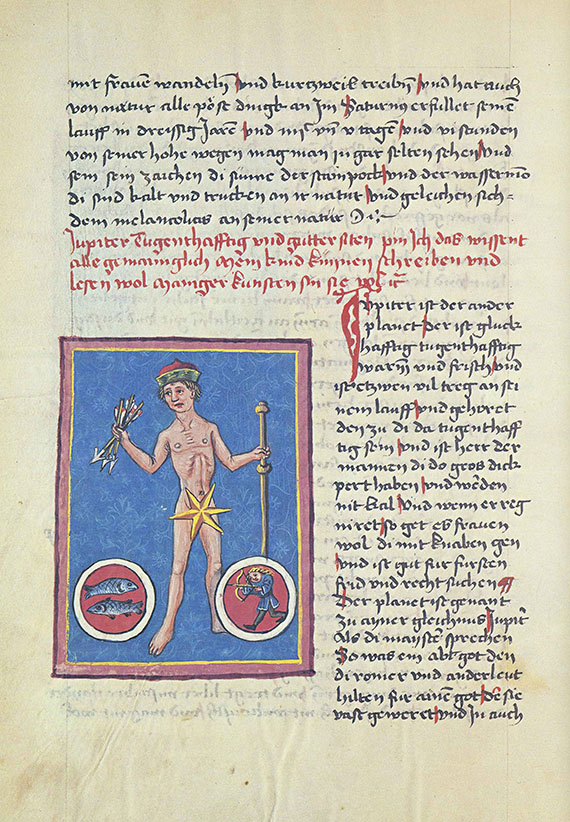 mit frawẽ wandelñ und kurtzweil treibñ und hat auch
von natur alle pöse dingk an Im Saturnus erfullet seinẽ
lauff in dreissig Jarẽ und mit v tagẽ und vi stunden
von seiner hohe wegen mag man in gar selten sehen und
sein sein zaichen di sunne der stainpock und der wasserman
di sind kalt und trucken an ir natur und geleichen sich
dem melancolicus an seiner natur
Jupiter Tugenthafftig und gutter siten pin Ich das wissent
alle gemainiglich Mein kind kunnen schreiben und
lesen wol Mainiger kunsten sin sie vol
Jupiter ist der ander
planet der ist gluck
hafftig tugenthafftig
warm und frisch und
ist etzwen vil treg an sei
nem lauff und gehoret
den zu di da tugenthaff
tig sein und ist herr der
mannen di do gros dick
pert haben und werden
nit kal Und wenn er reg
niret so get es frawen
wol di mit knaben gen
und ist gut fur fursten
frid und recht suchen
Der planet ist genant
zu ainer gleichnus Jupiter
Als di maister sprechen
So was ein abt got den
di romer und ander leut
hilten fur ainen got der sie
vast geweret und In auch